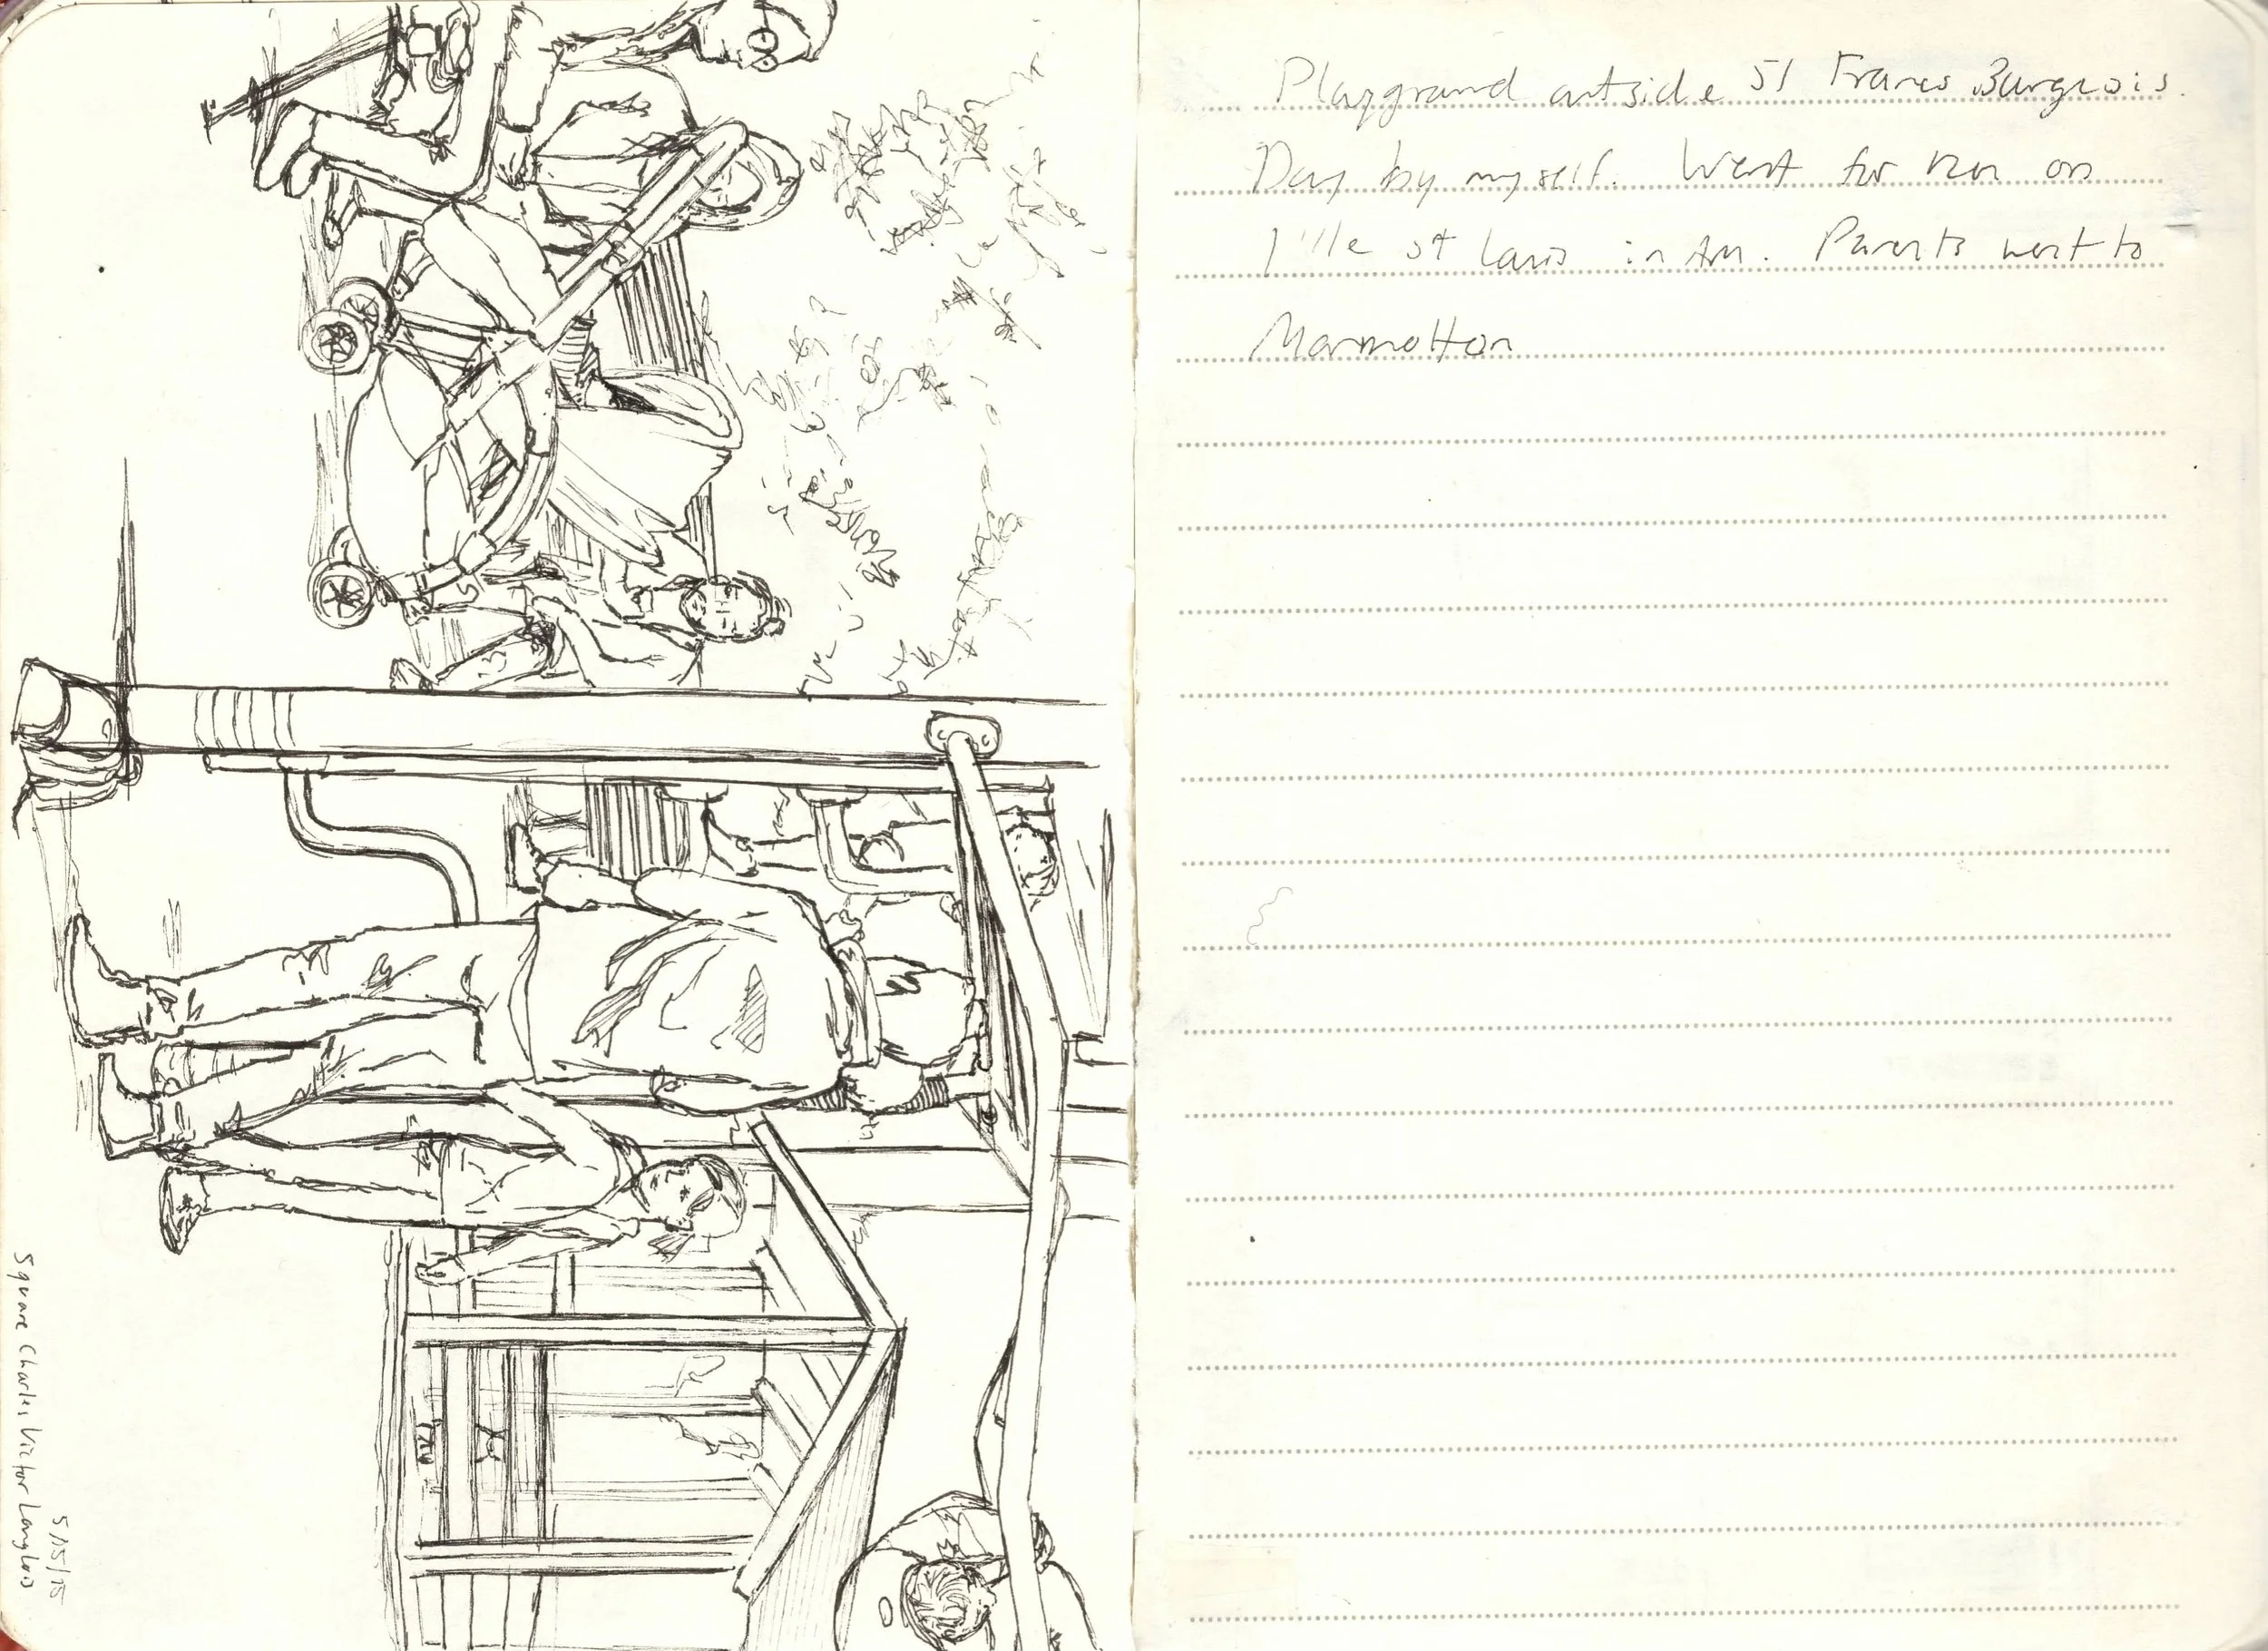 Playground outside 51 Francs Burgeois.
Day by myself. Went for run on
l'ile st Louis in AM. Parents went to
Marmotton
5/15/15
Square Charles Victor Langlois